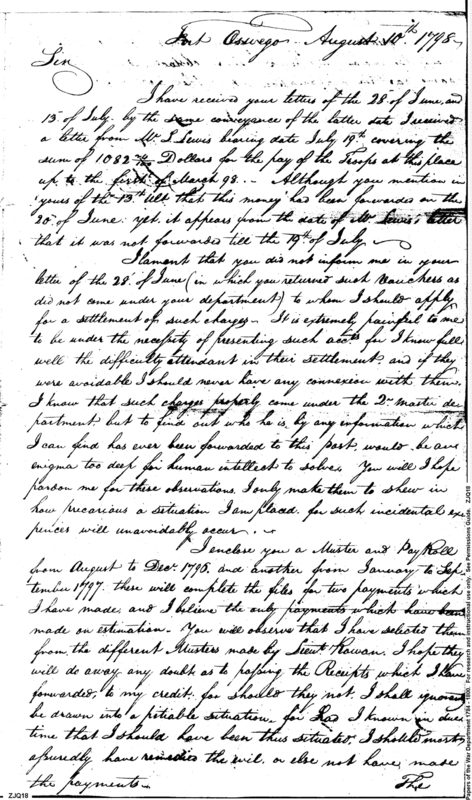 Fort Oswego August 10th 1798
Sir
I have received your letters of the 28 of June, and
15 of July. by the same conveyance of the latter date I received
a letter from Mr. S Lewis bearing date July 19th covering the
sum of 1082 Dollars for the pay of the Troops at this place
up to the first of March 98. – Although you mention in
yours of the 15th Ult that this money had been forwarded on the
20th of June. yet, it appears from the date of Mr Lewis's letter
that it was not forwarded till the 19th of July.
I lament that you did not inform me in your
letter of the 28th of June (in which you returned such Vouchers as
did not come under your department) to whom I should apply
for a settlement of such charges – It is extremely painful to me
to be under the necessity of presenting such accts for I know full
well the difficulty attendant in their settlement. and if they
were avoidable I should never have any connexion with them.
I know that such charges properly come under the 2r master de
partment. but to find out who he is, by any information which
I can find has ever been forwarded to this post, would be an
enigma too deep for human intellect to solve. You will I hope
pardon me for these observations, I only make them to shew in
how precarious a situation I am placed. for such incidental ex
pences will unavoidably occur.
I enclose you a Muster and Pay Roll
from August to Decr. 1796, and another from January to Sep
tember 1797. these will complete the files for two payments which
I have made. and I believe the only payments which have been
made on estimation. You will observe that I have selected them
from, the different Musters made by Lieut Rowan. I hope they
will do away any doubt as to passing the Receipts which I have
forwarded, to my credit. for should they not, I shall
be drawn into a pitiable situation. for Had I known in due
time that I should have been thus situated, I should most
assuredly have remedied the evil, or else not have made
the payments.
The
ZJQ18
Papers of the War Department 1784 - 1800. For research and instructional use only. See Permissions Guide. ZJQ18